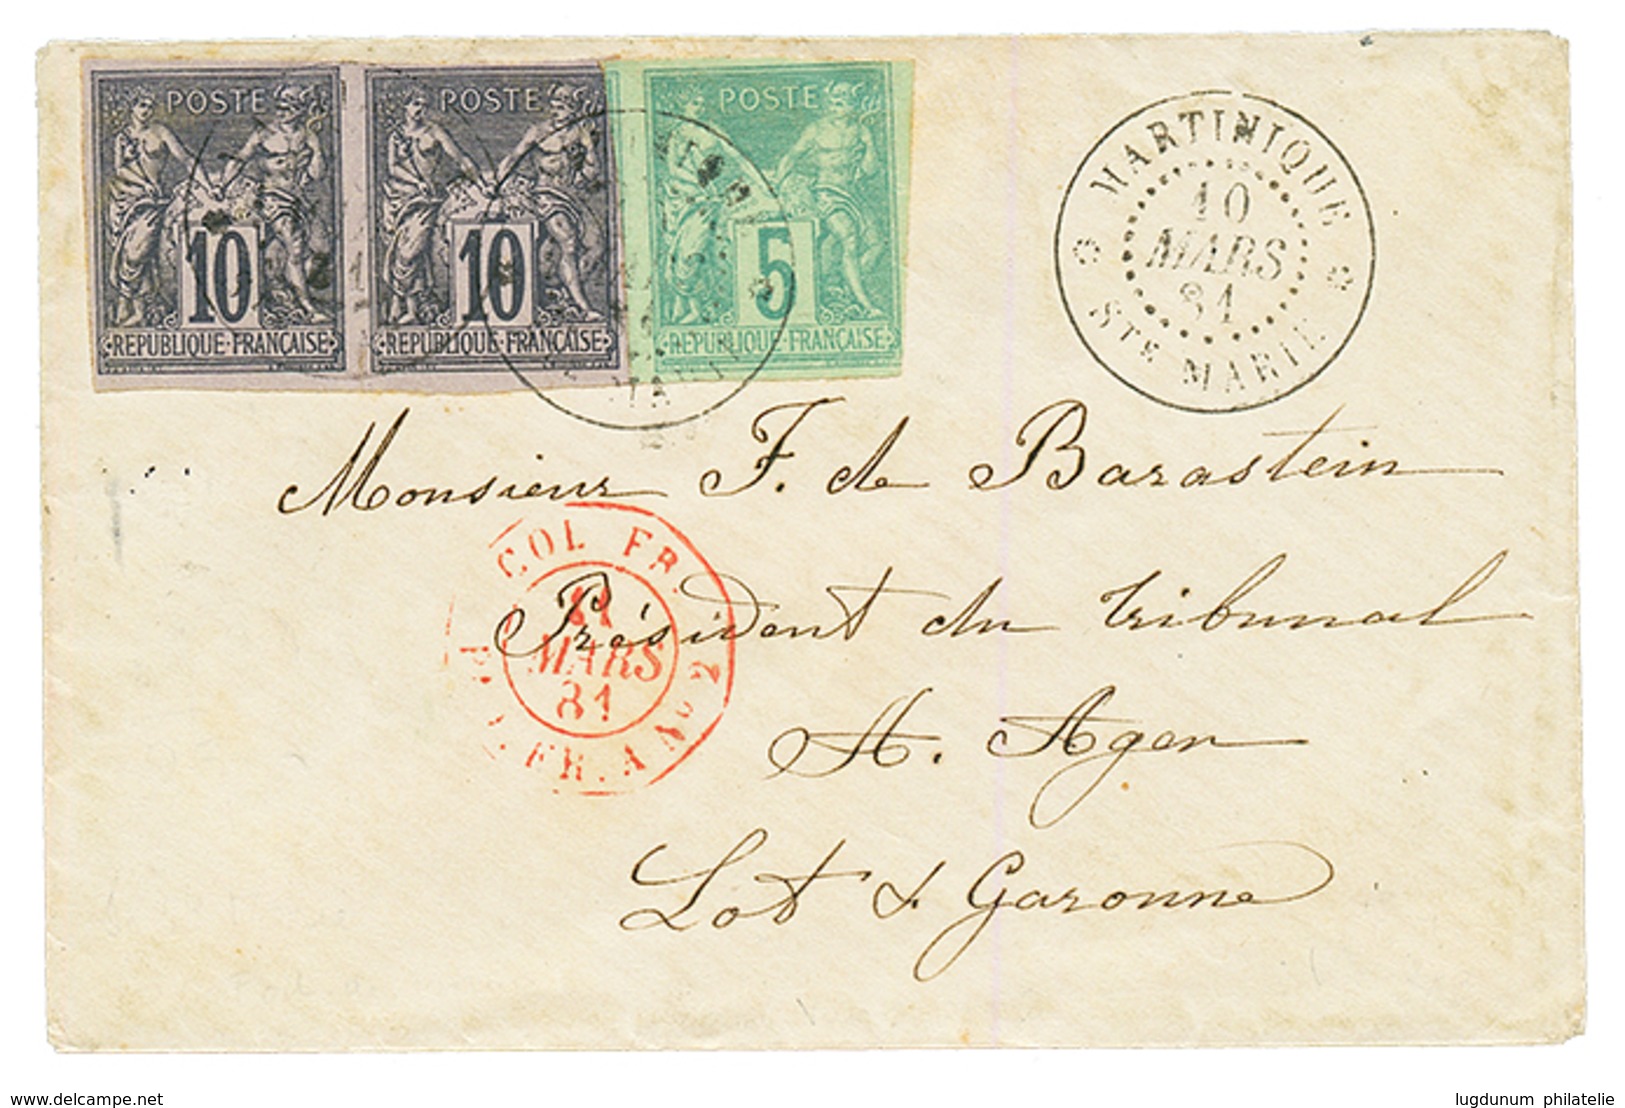 POSTE
10
REPUBLIQUE FRANÇAISE
POSTE
10
REPUBLIQUE FRANÇAISE
POSTE
5
REPUBLIQUE FRANÇAISE
MARTINIQUE
10
MARS
81
STE MARIE
Monsieur F. de Barastein
COL FR.
MARS
81
FR. A No 2
Président du tribunal
A. Agen
Lot & Garonne
delcampe.net
lugdunum philatelie